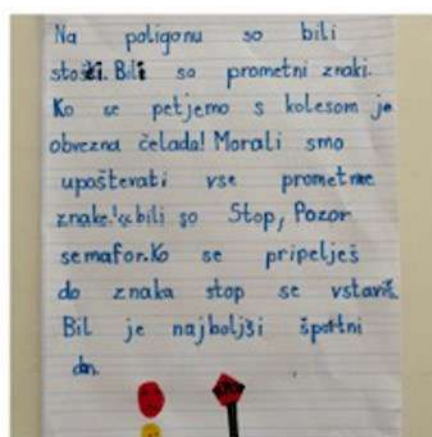 Na poligonu so bili
stožci. Bili so prometni znaki.
Ko se petjemo s kolesom je
obvezna čelada! Morali smo
upoštevati vse prometne
znake. bili so Stop, Pozor
semafor. Ko se pripelješ
do znaka stop se vstaviš.
Bil je najboljši športni
dn.